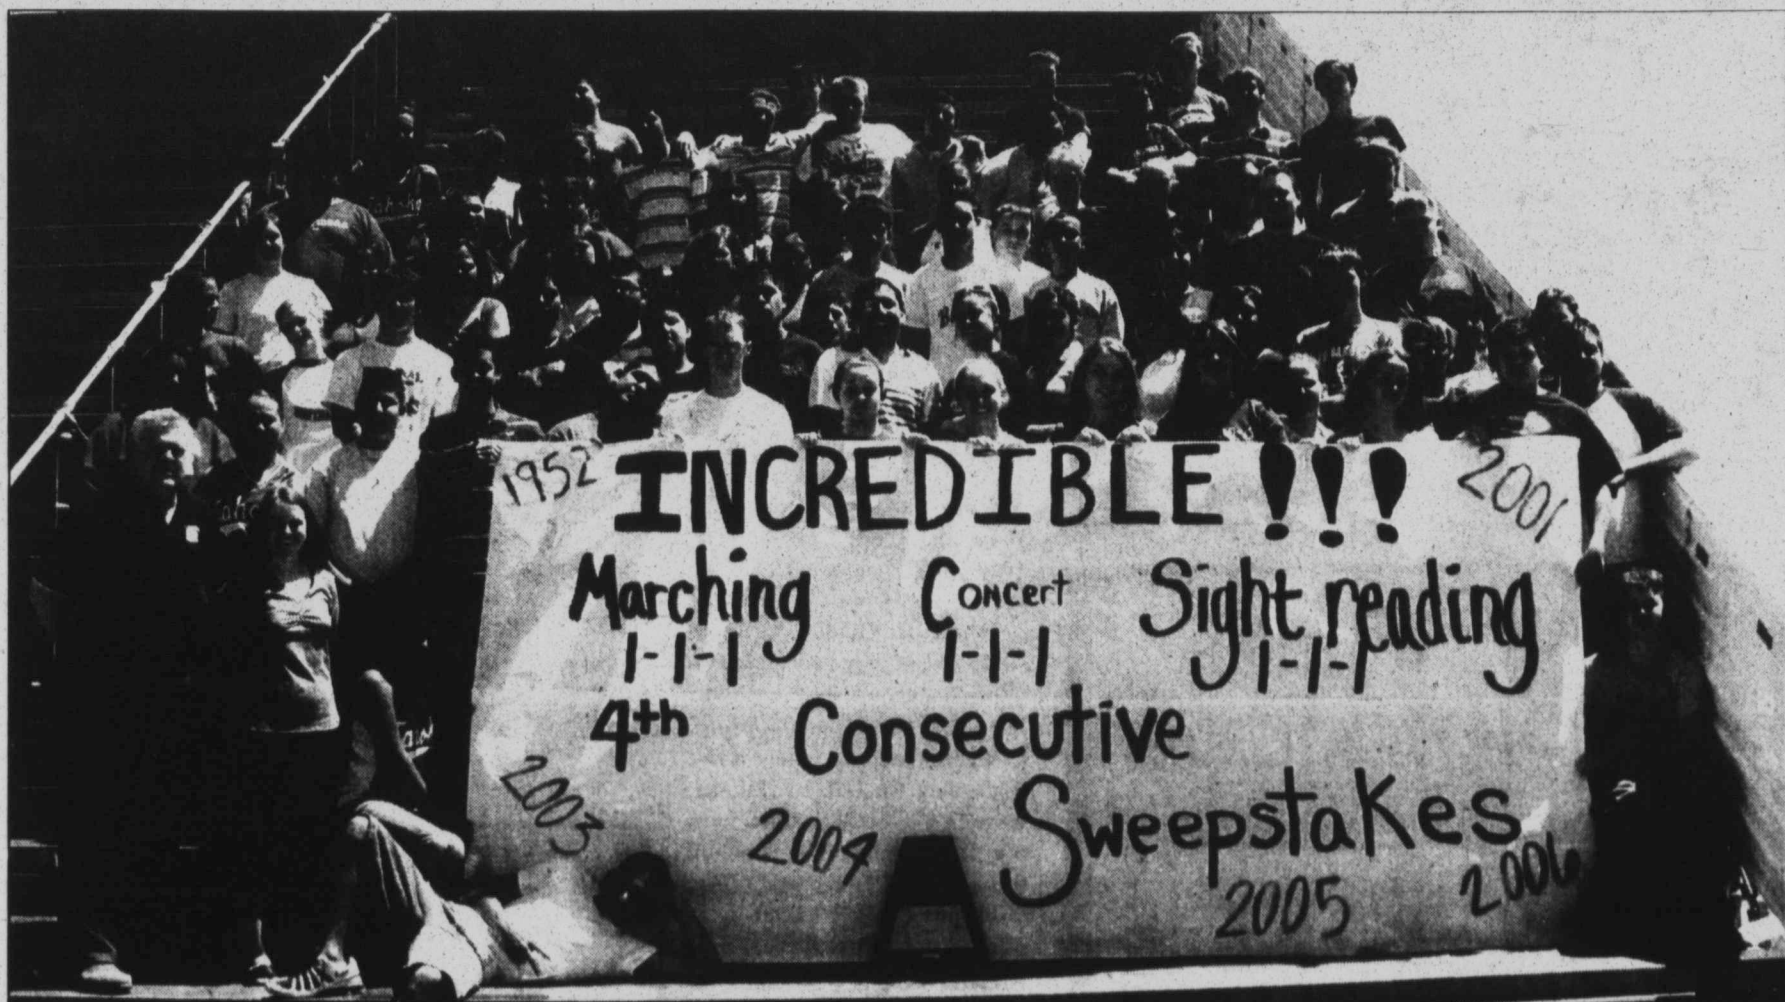 1952 INCREDIBLE!!! 2001
Marching Concert Sight reading
1-1-1 1-1-1 1-1-1
4th Consecutive
Sweepstakes
2003 2004 2005 2006